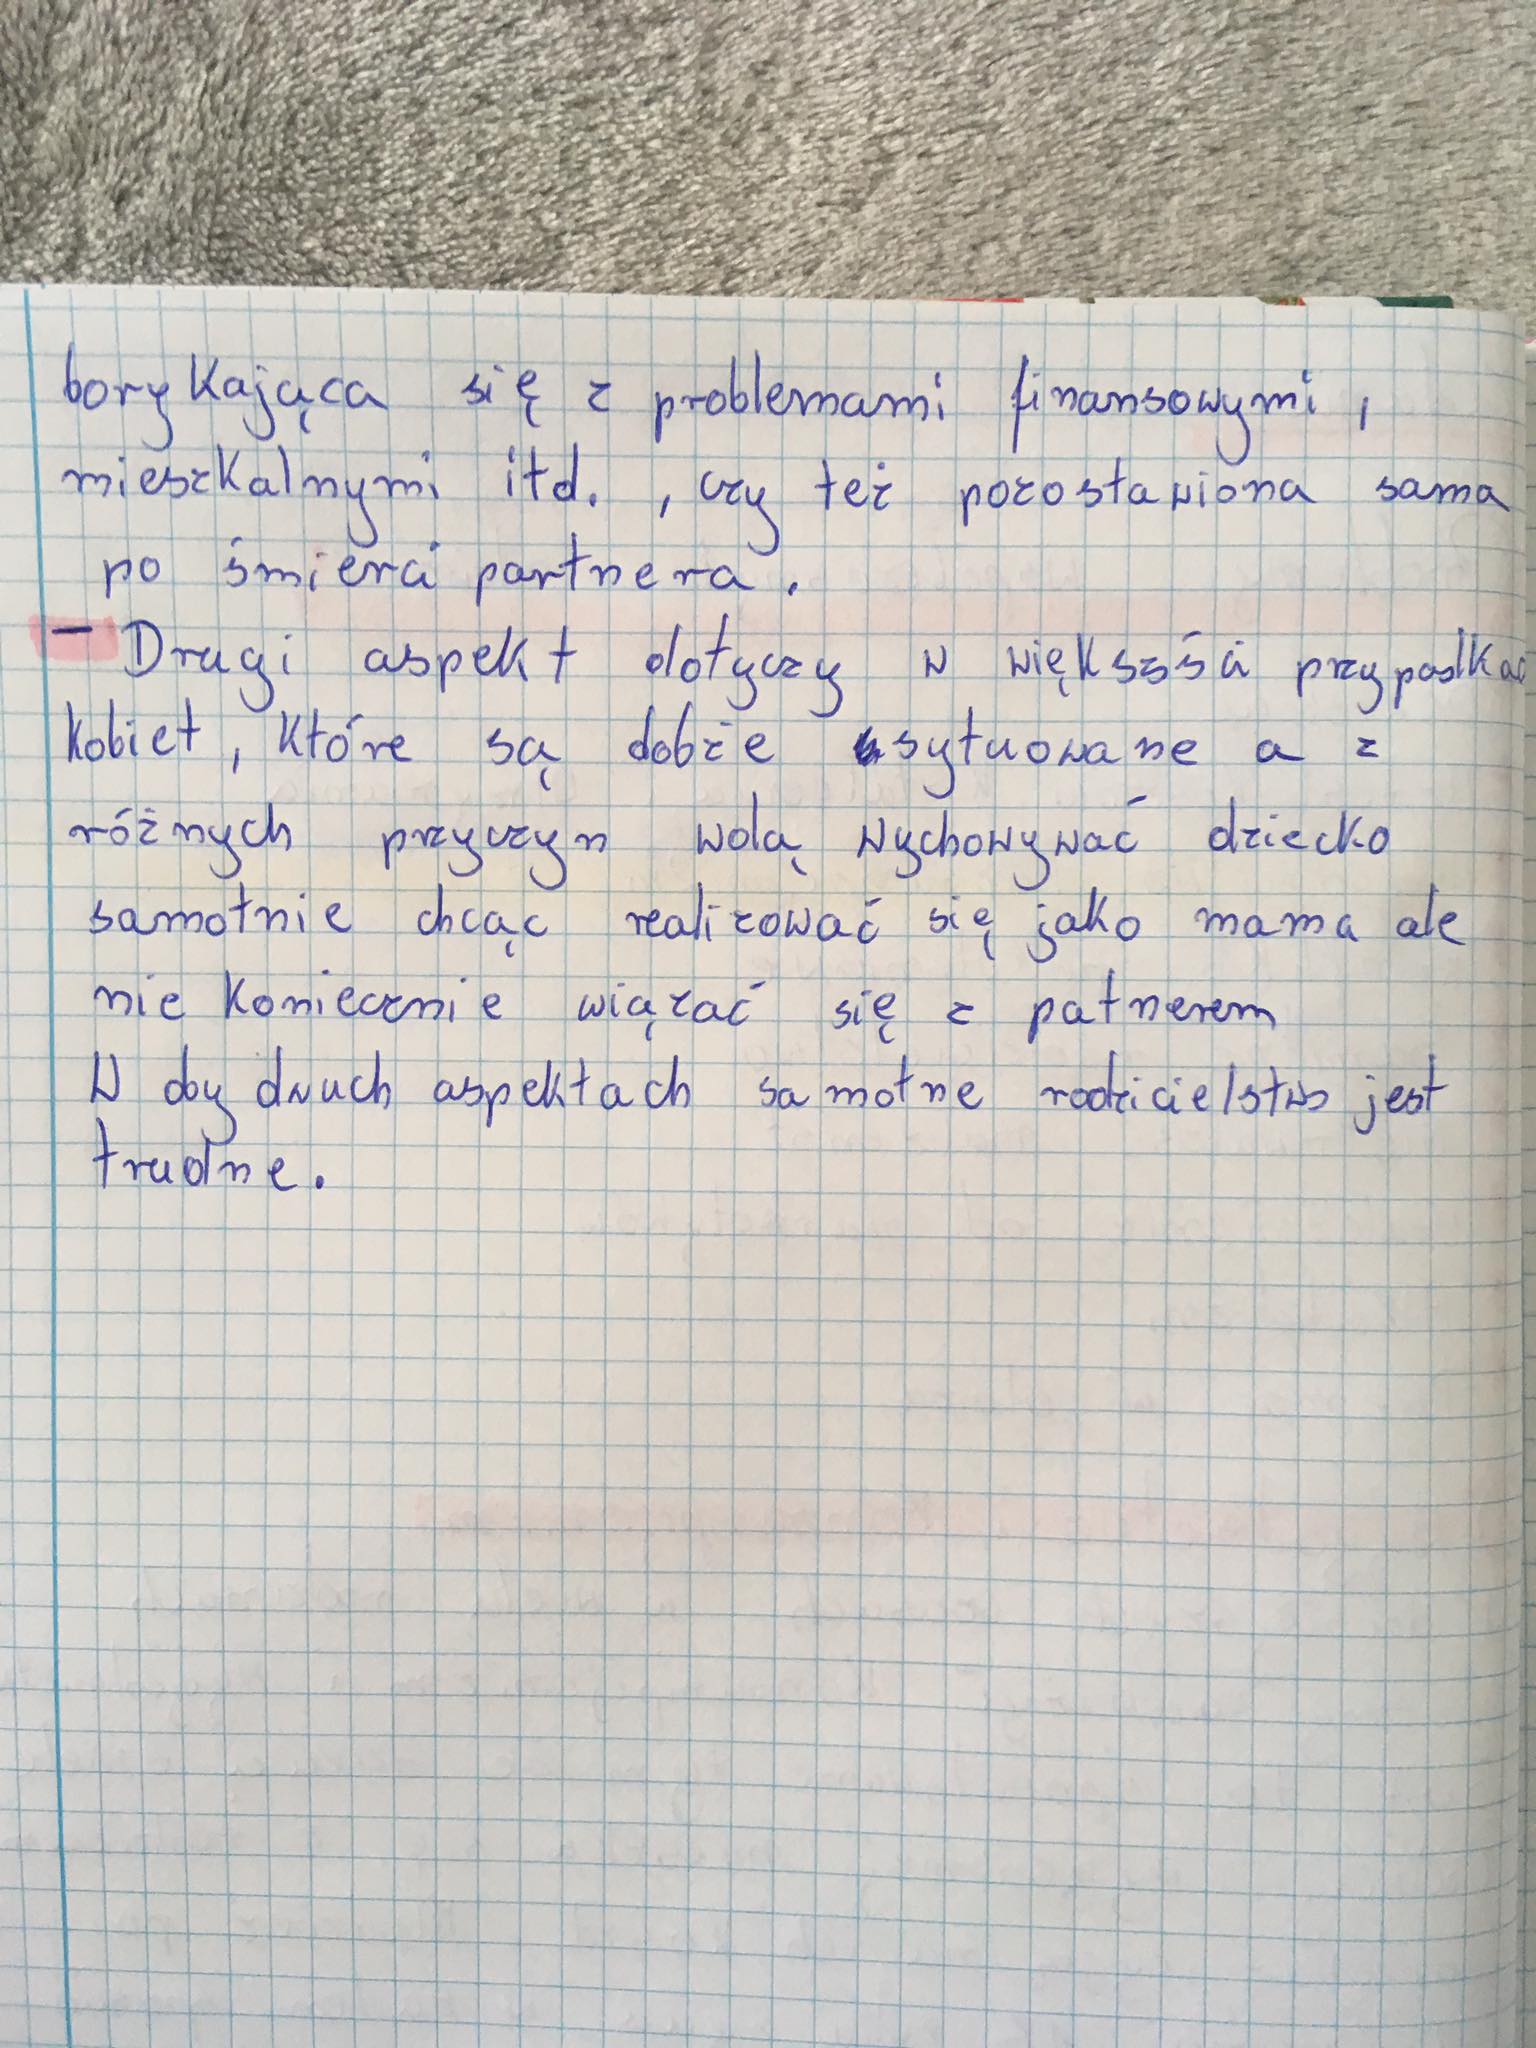 borykająca się z problemami finansowymi,
mieszkalnymi itd. , czy też pozostawiona sama
po śmierci partnera.
- Drugi aspekt dotyczy w większści przypadkac
kobiet, które są dobrze usytuowane a z
różnych przyczyn wolą wychowywać dziecko
samotnie chcąc realizować się jako mama ale
nie koniecznie wiązać się z patnerem
W oby dwuch aspektach samotne rodzicielstwo jest
trudne.